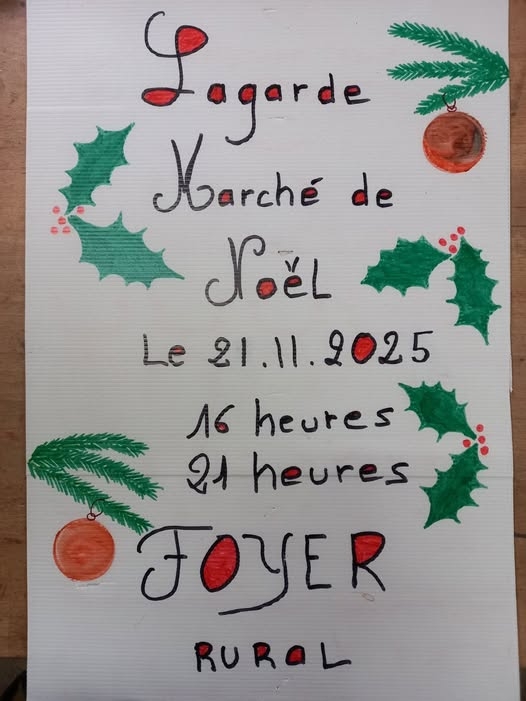 Lagarde
Marché de
Noël
Le 21.11.2025
16 heures
21 heures
FOYER
RURAL